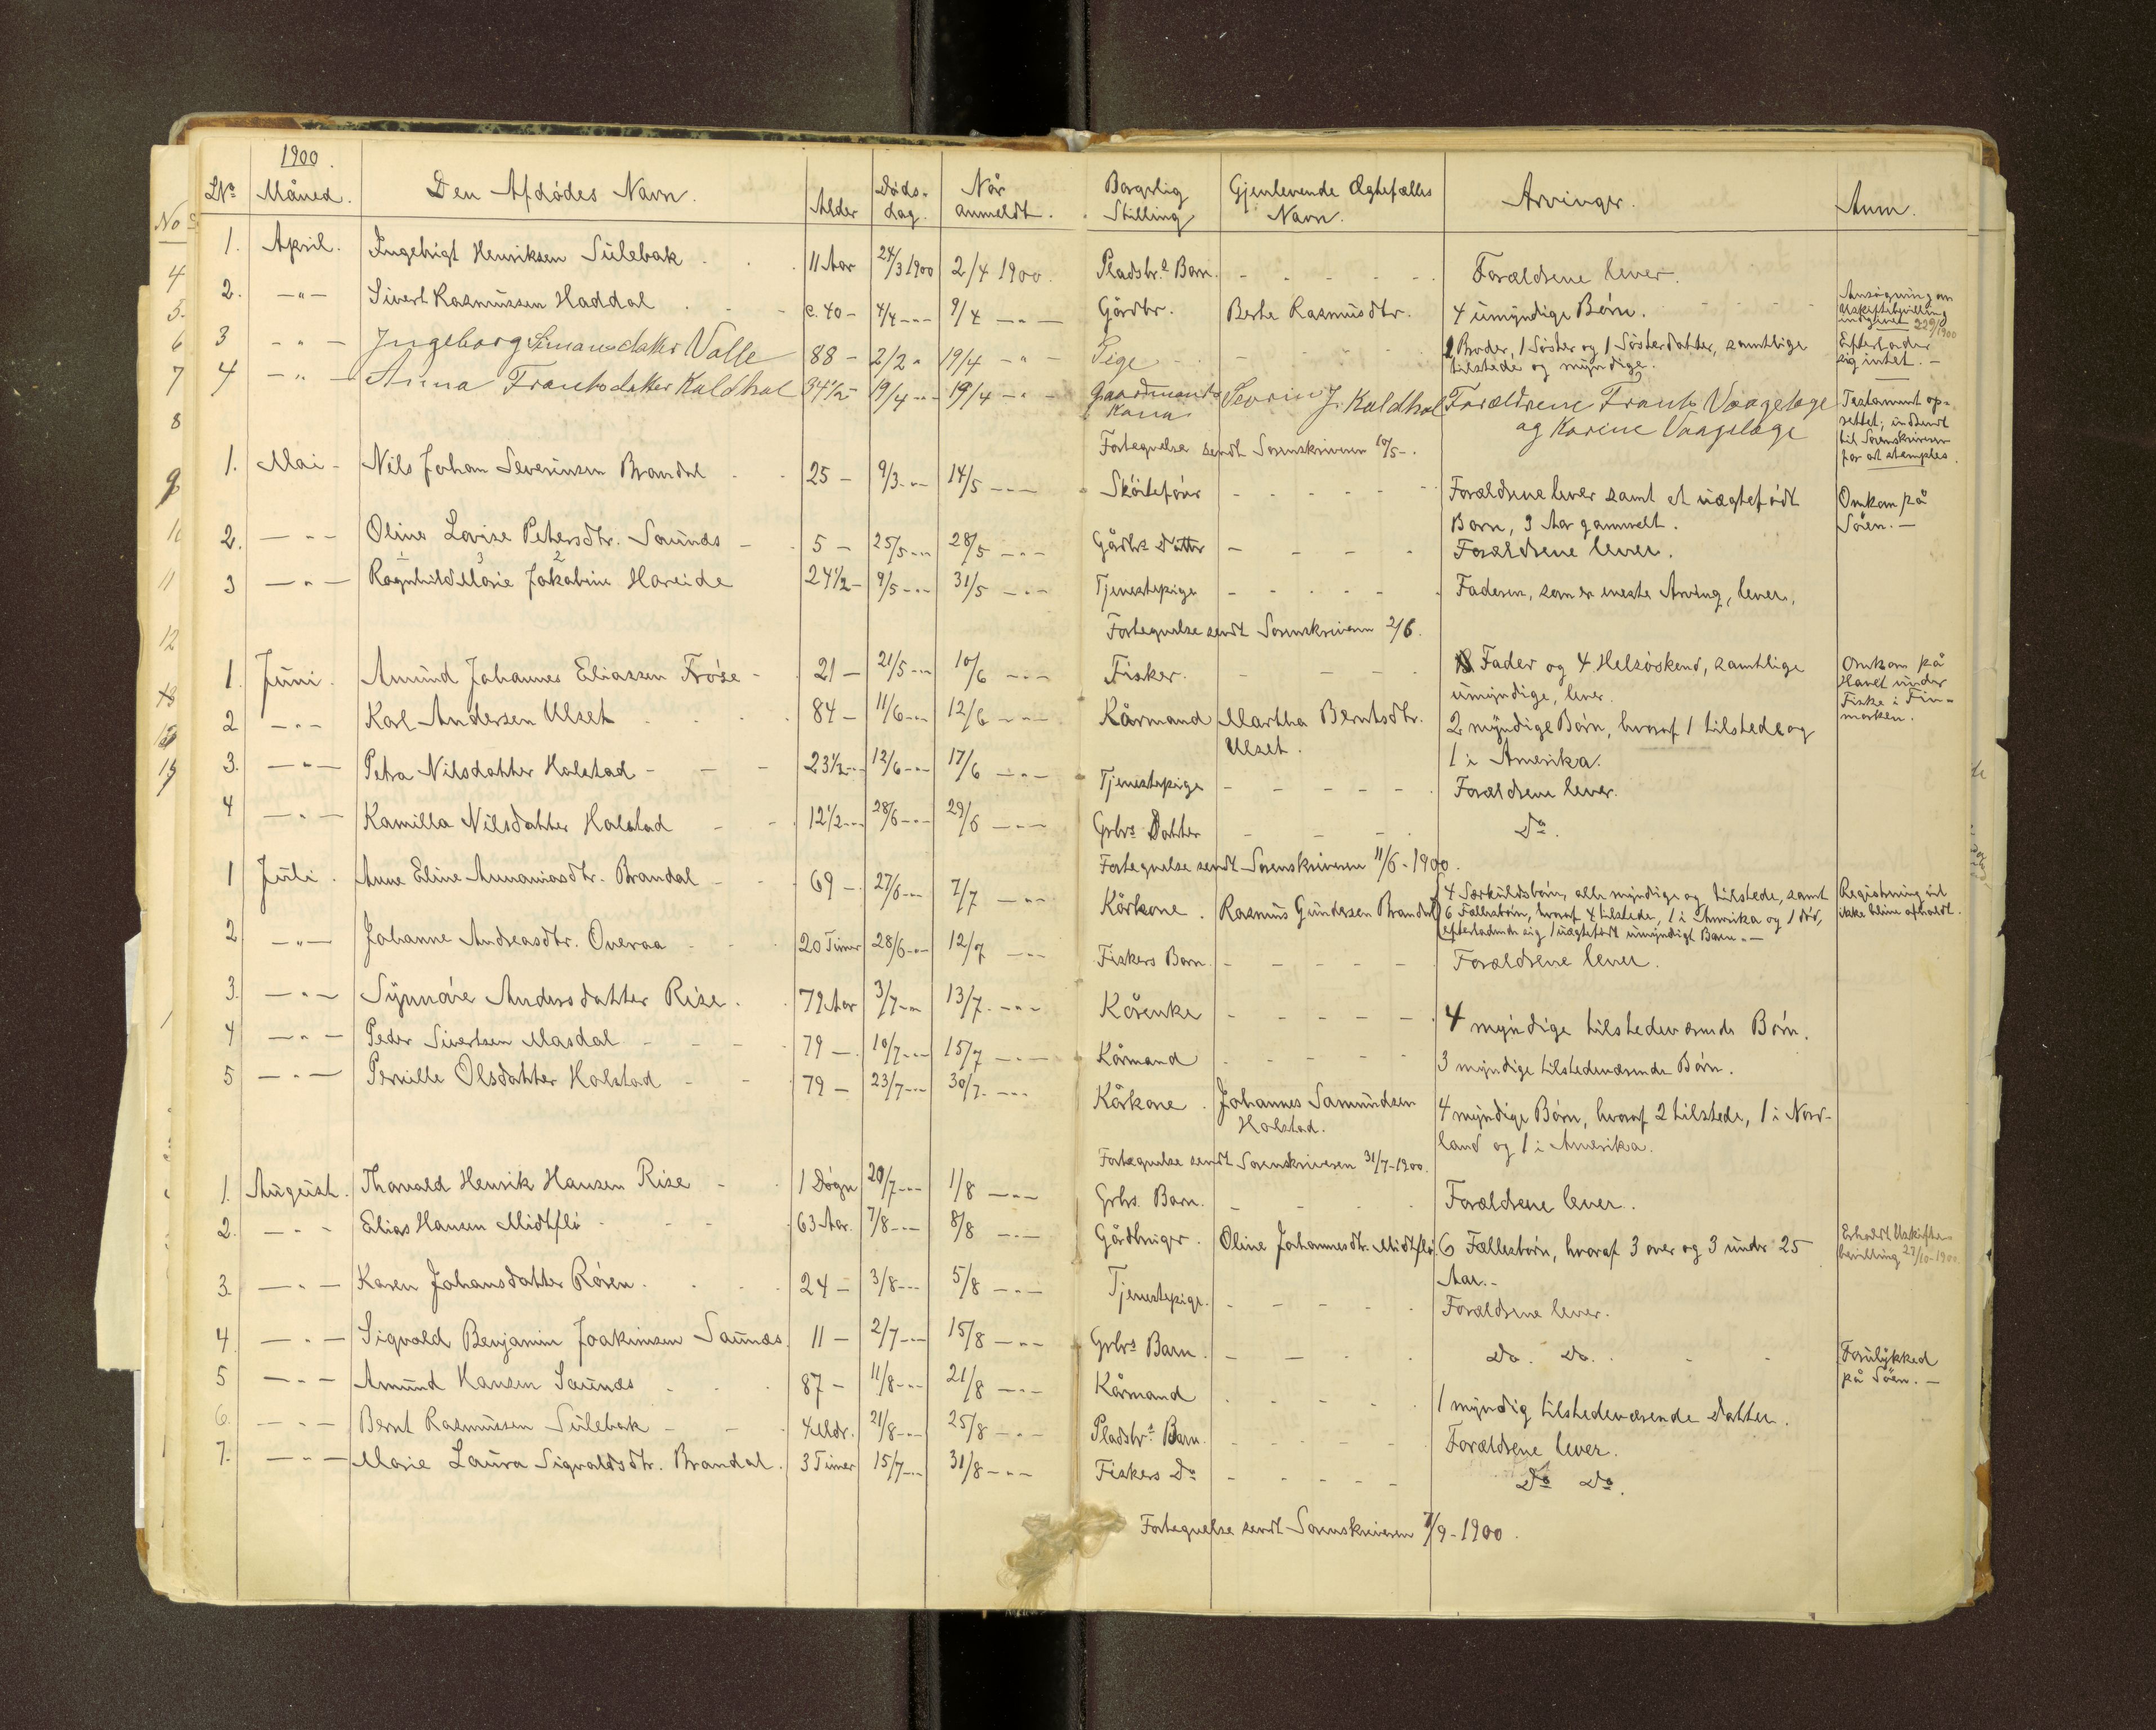 1900.
LN° Måned. Den Afdödes Navn. Alder Döds-dag. Når anmeldt. Borgerlig Stilling Gjenlevende Ægtefælles Navn. Arvinger. Anm.
1. April. Ingebrigt Henriksen Sülebak 11 Aar 24/3 1900 2/4 1900. Pladsbr.s Barn. Forældrene lever.
2. —"— Sivert Rasmüssen Haddal c. 40 — 4/4 —"— 9/4 —"— Gårdbr. Berte Rasmüsdtr. 4 ümyndige Börn. Ansögning om
indgivet 22/9 1900
3 —"— Ingeborg Simonsdatter Valle 88 — 2/2 " 19/4 —"— Pige 1 Broder, 1 Söster og 1 Sösterdatter, samtlige Efterlader
tilstede og myndige. sig intet. —
4 —"— Anna Frantsdatter Kaldhol 34 1/2 — 19/4 —"— 19/4 —"— Gaardmands Severin J. Kaldhol Forældrene Frants Vaagelage Testament op-
Kona og Karine Vaagelage settet; indsendt
til Sorenskriveren
for at stemples.
Fortegnelse sendt Sorenskriveren 10/5 -.
1. Mai - Nils Johan Severinsen Brandal 25 — 9/3 —"— 14/5 —"— Sköiteförer Forældrene lever samt et üægtefödt Omkom på
Barn, 3 Aar gammelt. Söen. —
2. —"— Oline Lovise Petersdtr. Saunæs 5 — 25/5 —"— 28/5 —"— Gårdbrs Datter Forældrene lever.
1 3 2
3 —"— Ragnhild Marie Jakobine Hareide 24 1/2 — 9/5 —"— 31/5 —"— Tjenestepige Faderen, som er eneste Arving, lever.
Fortegnelse sendt Sorenskriveren 2/6.
1. Jüni. Amünd Johannes Eliassen Fröse 21 — 21/5 —"— 10/6 —"— Fisker. Fader og 4 Helsöskend, samtlige Omkom på
ümyndige, lever. Havet ünder
Fiske i Fin-
marken.
2 —"— Karl Andersen Ulset 84 — 11/6 —"— 12/6 —"— Kårmand Martha Berntsdtr. 2 myndige Börn, hvoraf 1 tilstede og
Ulset. 1 i Amerika.
3. —"— Petra Nilsdatter Halstad 23 1/2 —"— 12/6 —"— 17/6 —"— Tjenestepige Forældrene lever.
4 —"— Kamilla Nilsdatter Halstad 12 1/2 —"— 28/6 —"— 29/6 —"— Grbrs Datter Do.
Fortegnelse sendt Sorenskriveren 11/6 - 1900.
1 Jüli. Anne Eline Annaniasdtr. Brandal 69 — 27/6 —"— 7/7 —"— Kårkone. Rasmus Gündersen Brandal 4 Særküldsbörn, alle myndige og tilstede, samt Registrering vil
6 Fællesbörn, hvoraf 4 tilstede, 1 i Amerika og 1 död, ikke blive afholdt.
efterladende sig 1 üægtefödt ümyndigt Barn. —
2 —"— Johanne Andreasdtr. Overaa 20 Timer 28/6 —"— 12/7 —"— Fiskers Barn Forældrene lever.
3. —"— Synnöve Andersdatter Rise 79 Aar 3/7 —"— 13/7 —"— Kårenke 4 myndige tilstedeværende Börn.
4 —"— Peder Sivertsen Masdal 79 — 10/7 —"— 15/7 —"— Kårmand 3 myndige tilstedeværende Börn.
5 —"— Pernille Olsdatter Halstad 79 — 23/7 —"— 30/7 —"— Kårkone. Johannes Samundsen 4 myndige Börn, hvoraf 2 tilstede, 1 i Nord-
Halstad. land og 1 i Amerika.
Fortegnelse sendt Sorenskriveren 31/7 - 1900.
1. Aügüst. Thorvald Henrik Hansen Rise 1 Dögn 20/7 —"— 1/8 —"— Grbrs. Barn. Forældrene lever.
2. —"— Elias Hansen Midtflö 63 Aar. 7/8 —"— 8/8 —"— Gårdbrüger. Oline Johannesdtr. Midtflö 6 Fællesbörn, hvoraf 3 over og 3 ünder 25 Erholdt Uskifte-
Aar. - bevilling 27/10 - 1900.
3. —"— Karen Johansdatter Rösen 24 — 3/8 —"— 5/8 —"— Tjenestepige. Forældrene lever.
4. —"— Sigvald Benjamin Joakimsen Saunæs 11 — 2/7 —"— 15/8 —"— Grbrs Barn. Do. Do. Forülykked
på Söen. —
5 —"— Amünd Hansen Saunæs 87 — 11/8 —"— 21/8 —"— Kårmand 1 myndig tilstedeværende Datter.
6. —"— Bernt Rasmüssen Sülebak 4 Mdr. 21/8 —"— 25/8 —"— Pladsbr.s Barn Forældrene lever.
7. —"— Marie Laüra Sigvaldsdtr. Brandal. 3 Timer 15/7 —"— 31/8 —"— Fiskers Do Do Do.
Fortegnelse sendt Sorenskriveren 7/9 - 1900.
No
4
5.
6
7
8
9
10
11
12